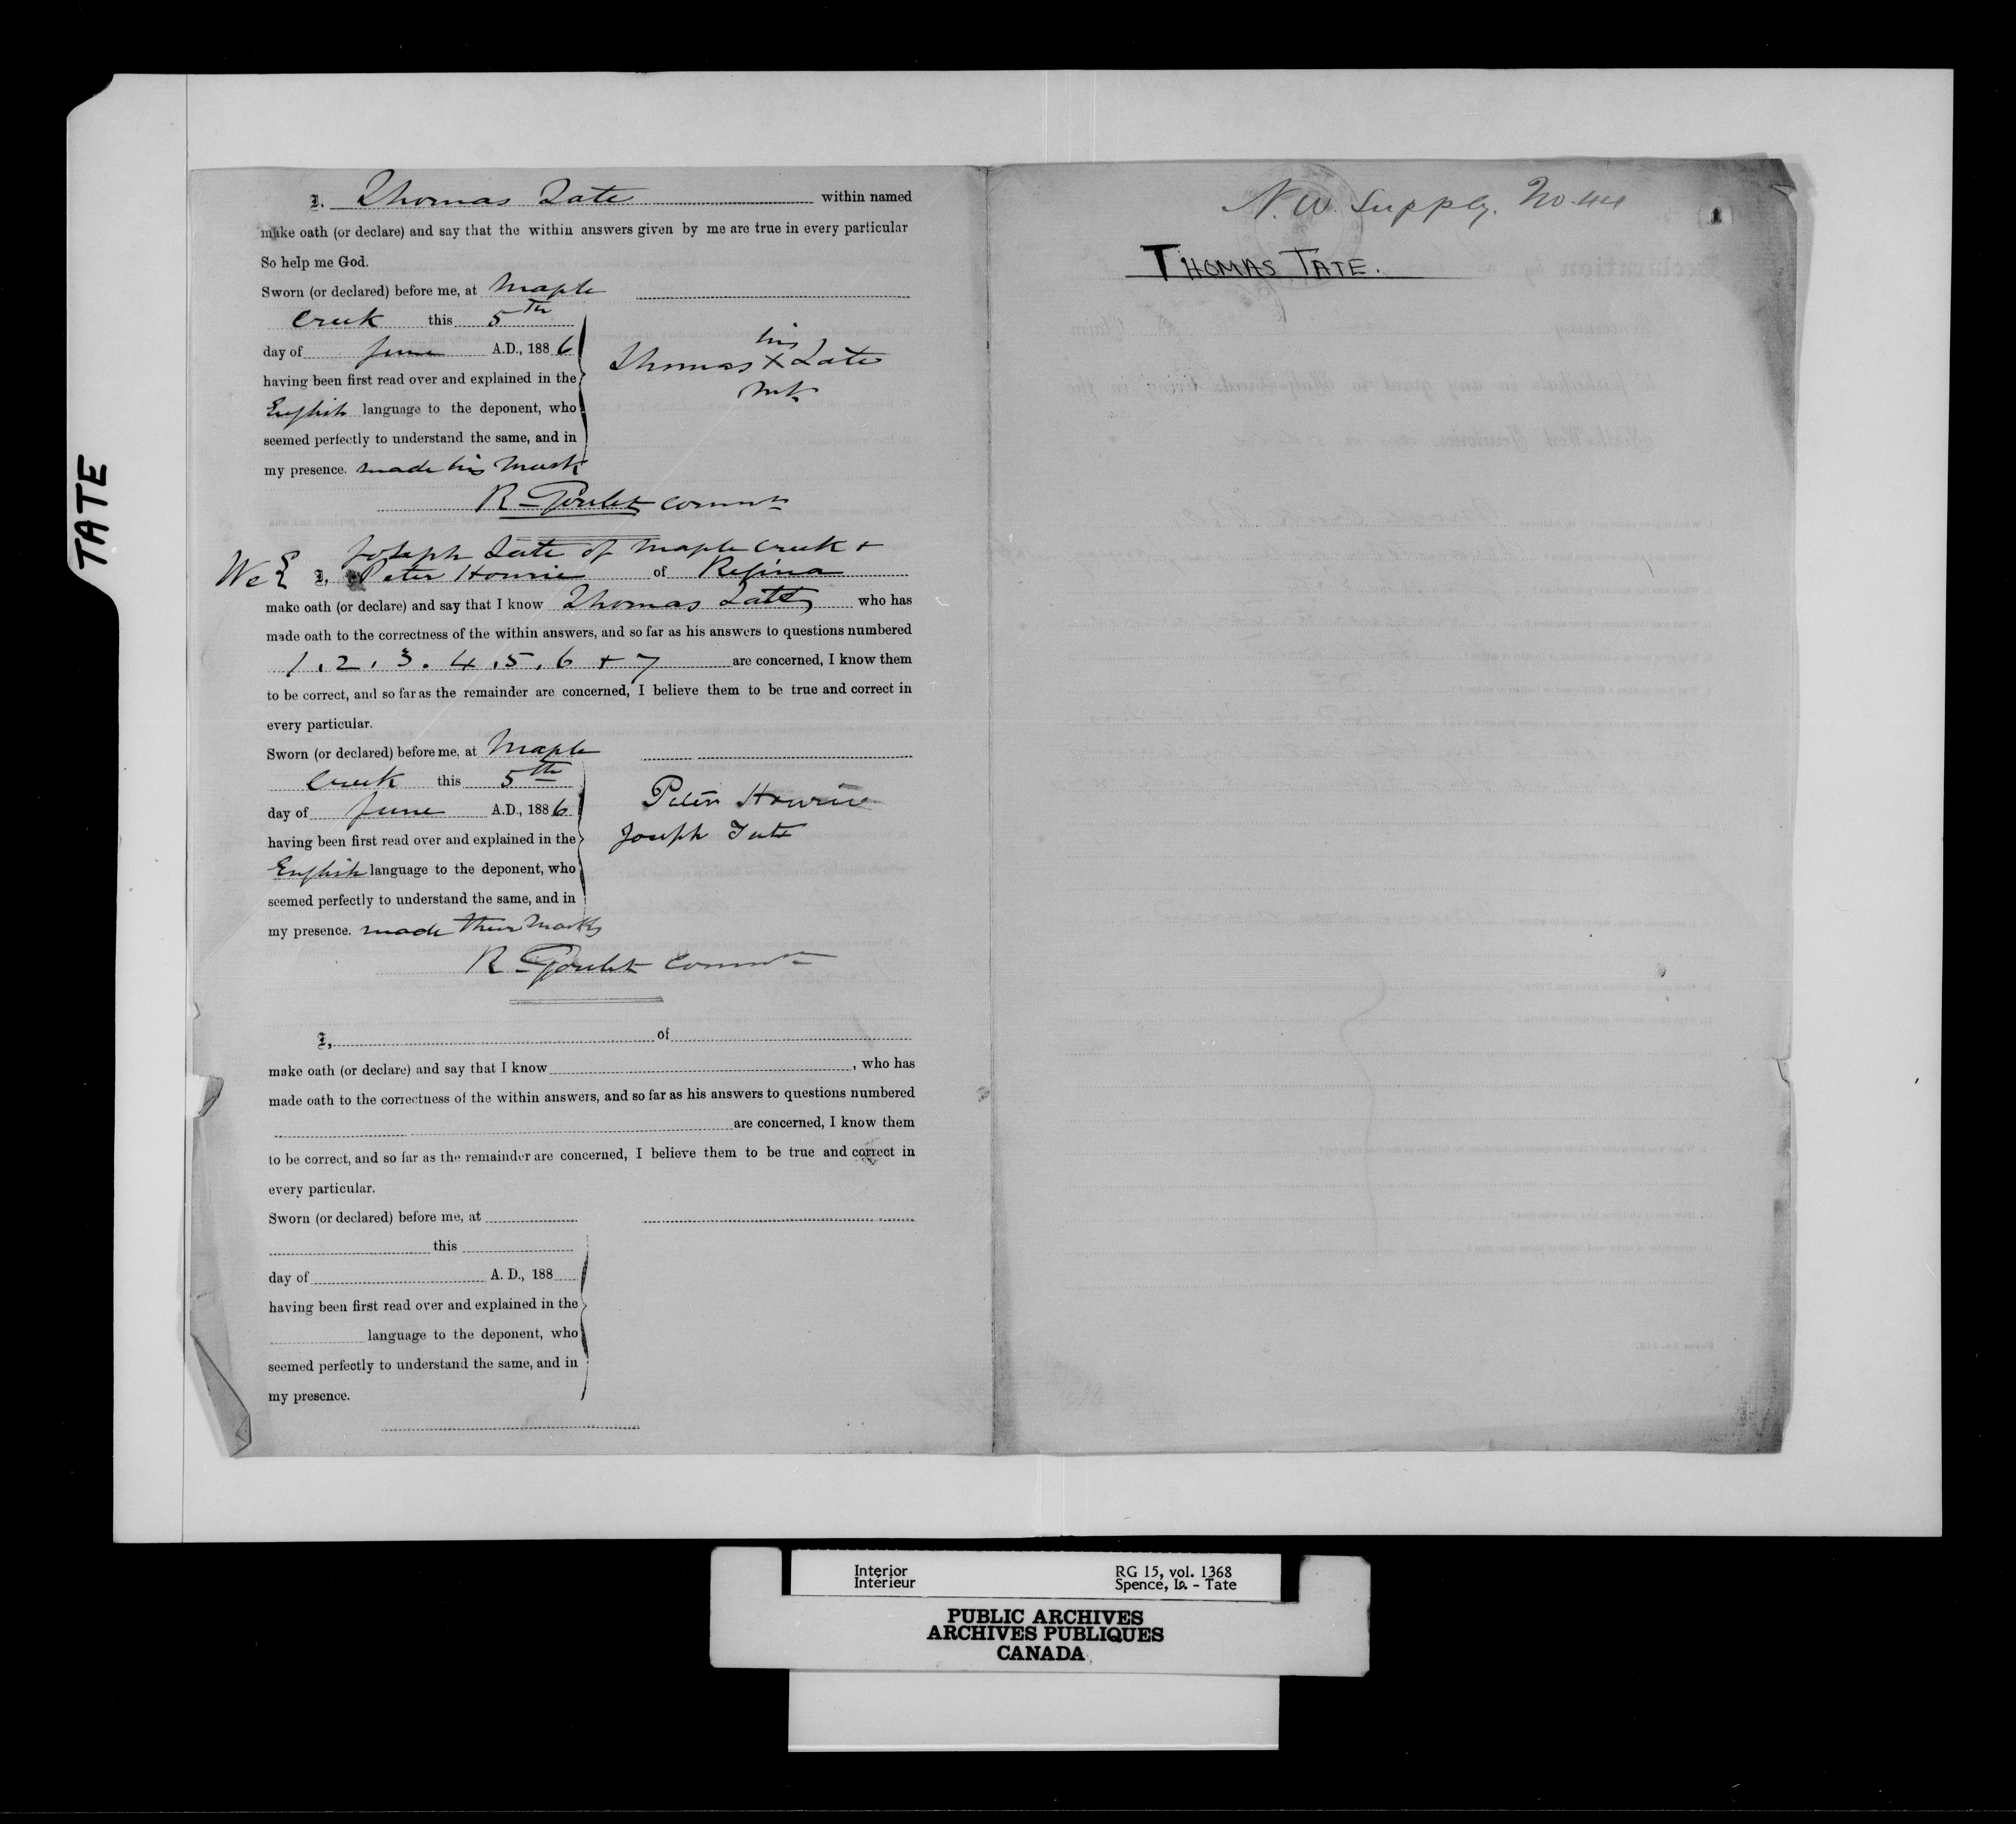 TATE
I, Thomas Tate within named
make oath (or declare) and say that the within answers given by me are true in every particular
So help me God.
Sworn (or declared) before me, at Maple
Creek this 5th
day of June A.D., 1886
having been first read over and explained in the
English language to the deponent, who
seemed perfectly to understand the same, and in
my presence. made his mark
his
Thomas X Tate
mk
R Goulet Commr
Joseph Tate of Maple Creek +
We I, Peter Hourie of Regina
make oath (or declare) and say that I know Thomas Tate who has
made oath to the correctness of the within answers, and so far as his answers to questions numbered
1. 2. 3. 4. 5. 6 + 7 are concerned, I know them
to be correct, and so far as the remainder are concerned, I believe them to be true and correct in
every particular.
Sworn (or declared) before me, at Maple
Creek this 5th
day of June A.D., 1886
having been first read over and explained in the
English language to the deponent, who
seemed perfectly to understand the same, and in
my presence. made their marks
Peter Hourie
Joseph Tate
R Goulet Commr
I, of
make oath (or declare) and say that I know , who has
made oath to the correctness of the within answers, and so far as his answers to questions numbered
are concerned, I know them
to be correct, and so far as the remainder are concerned, I believe them to be true and correct in
every particular.
Sworn (or declared) before me, at
this
day of A. D., 188
having been first read over and explained in the
language to the deponent, who
seemed perfectly to understand the same, and in
my presence.
N. W. Supply. No. 44
1
THOMAS TATE.
Interior RG 15, vol. 1368
Intérieur Spence, Is. - Tate
PUBLIC ARCHIVES
ARCHIVES PUBLIQUES
CANADA